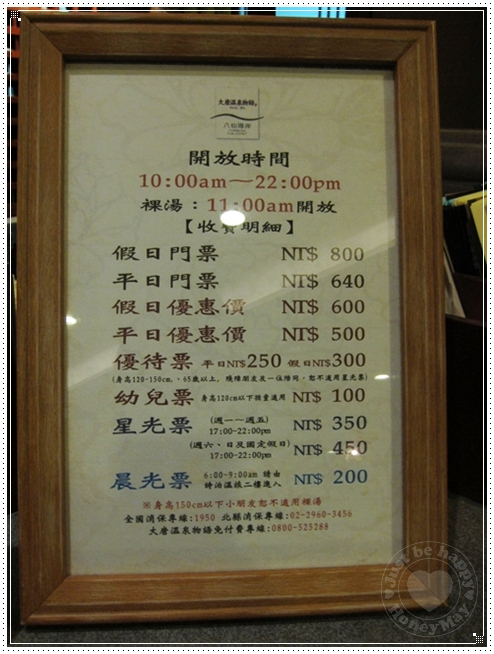 大唐溫泉物語
八仙海岸
開放時間
10:00am~22:00pm
裸湯：11:00am開放
【收費明細】
假日門票 NT$ 800
平日門票 NT$ 640
假日優惠價 NT$ 600
平日優惠價 NT$ 500
優待票 平日NT$250 假日NT$300
(身高120-150cm、65歲以上，殘障朋友及一位陪同，恕不適用星光票)
幼兒票 身高120cm以下孩童適用 NT$ 100
星光票 (週一~週五) 17:00-22:00pm NT$ 350
(週六、日及國定假日) 17:00-22:00pm NT$ 450
晨光票 6:00-9:00am 請由時泊溫旅二樓進入 NT$ 200
※身高150cm以下小朋友恕不適用裸湯
全國消保專線:1950 北縣消保專線:02-2960-3456
大唐溫泉物語免付費專線:0800-325288
Just be happy
HoneyMay